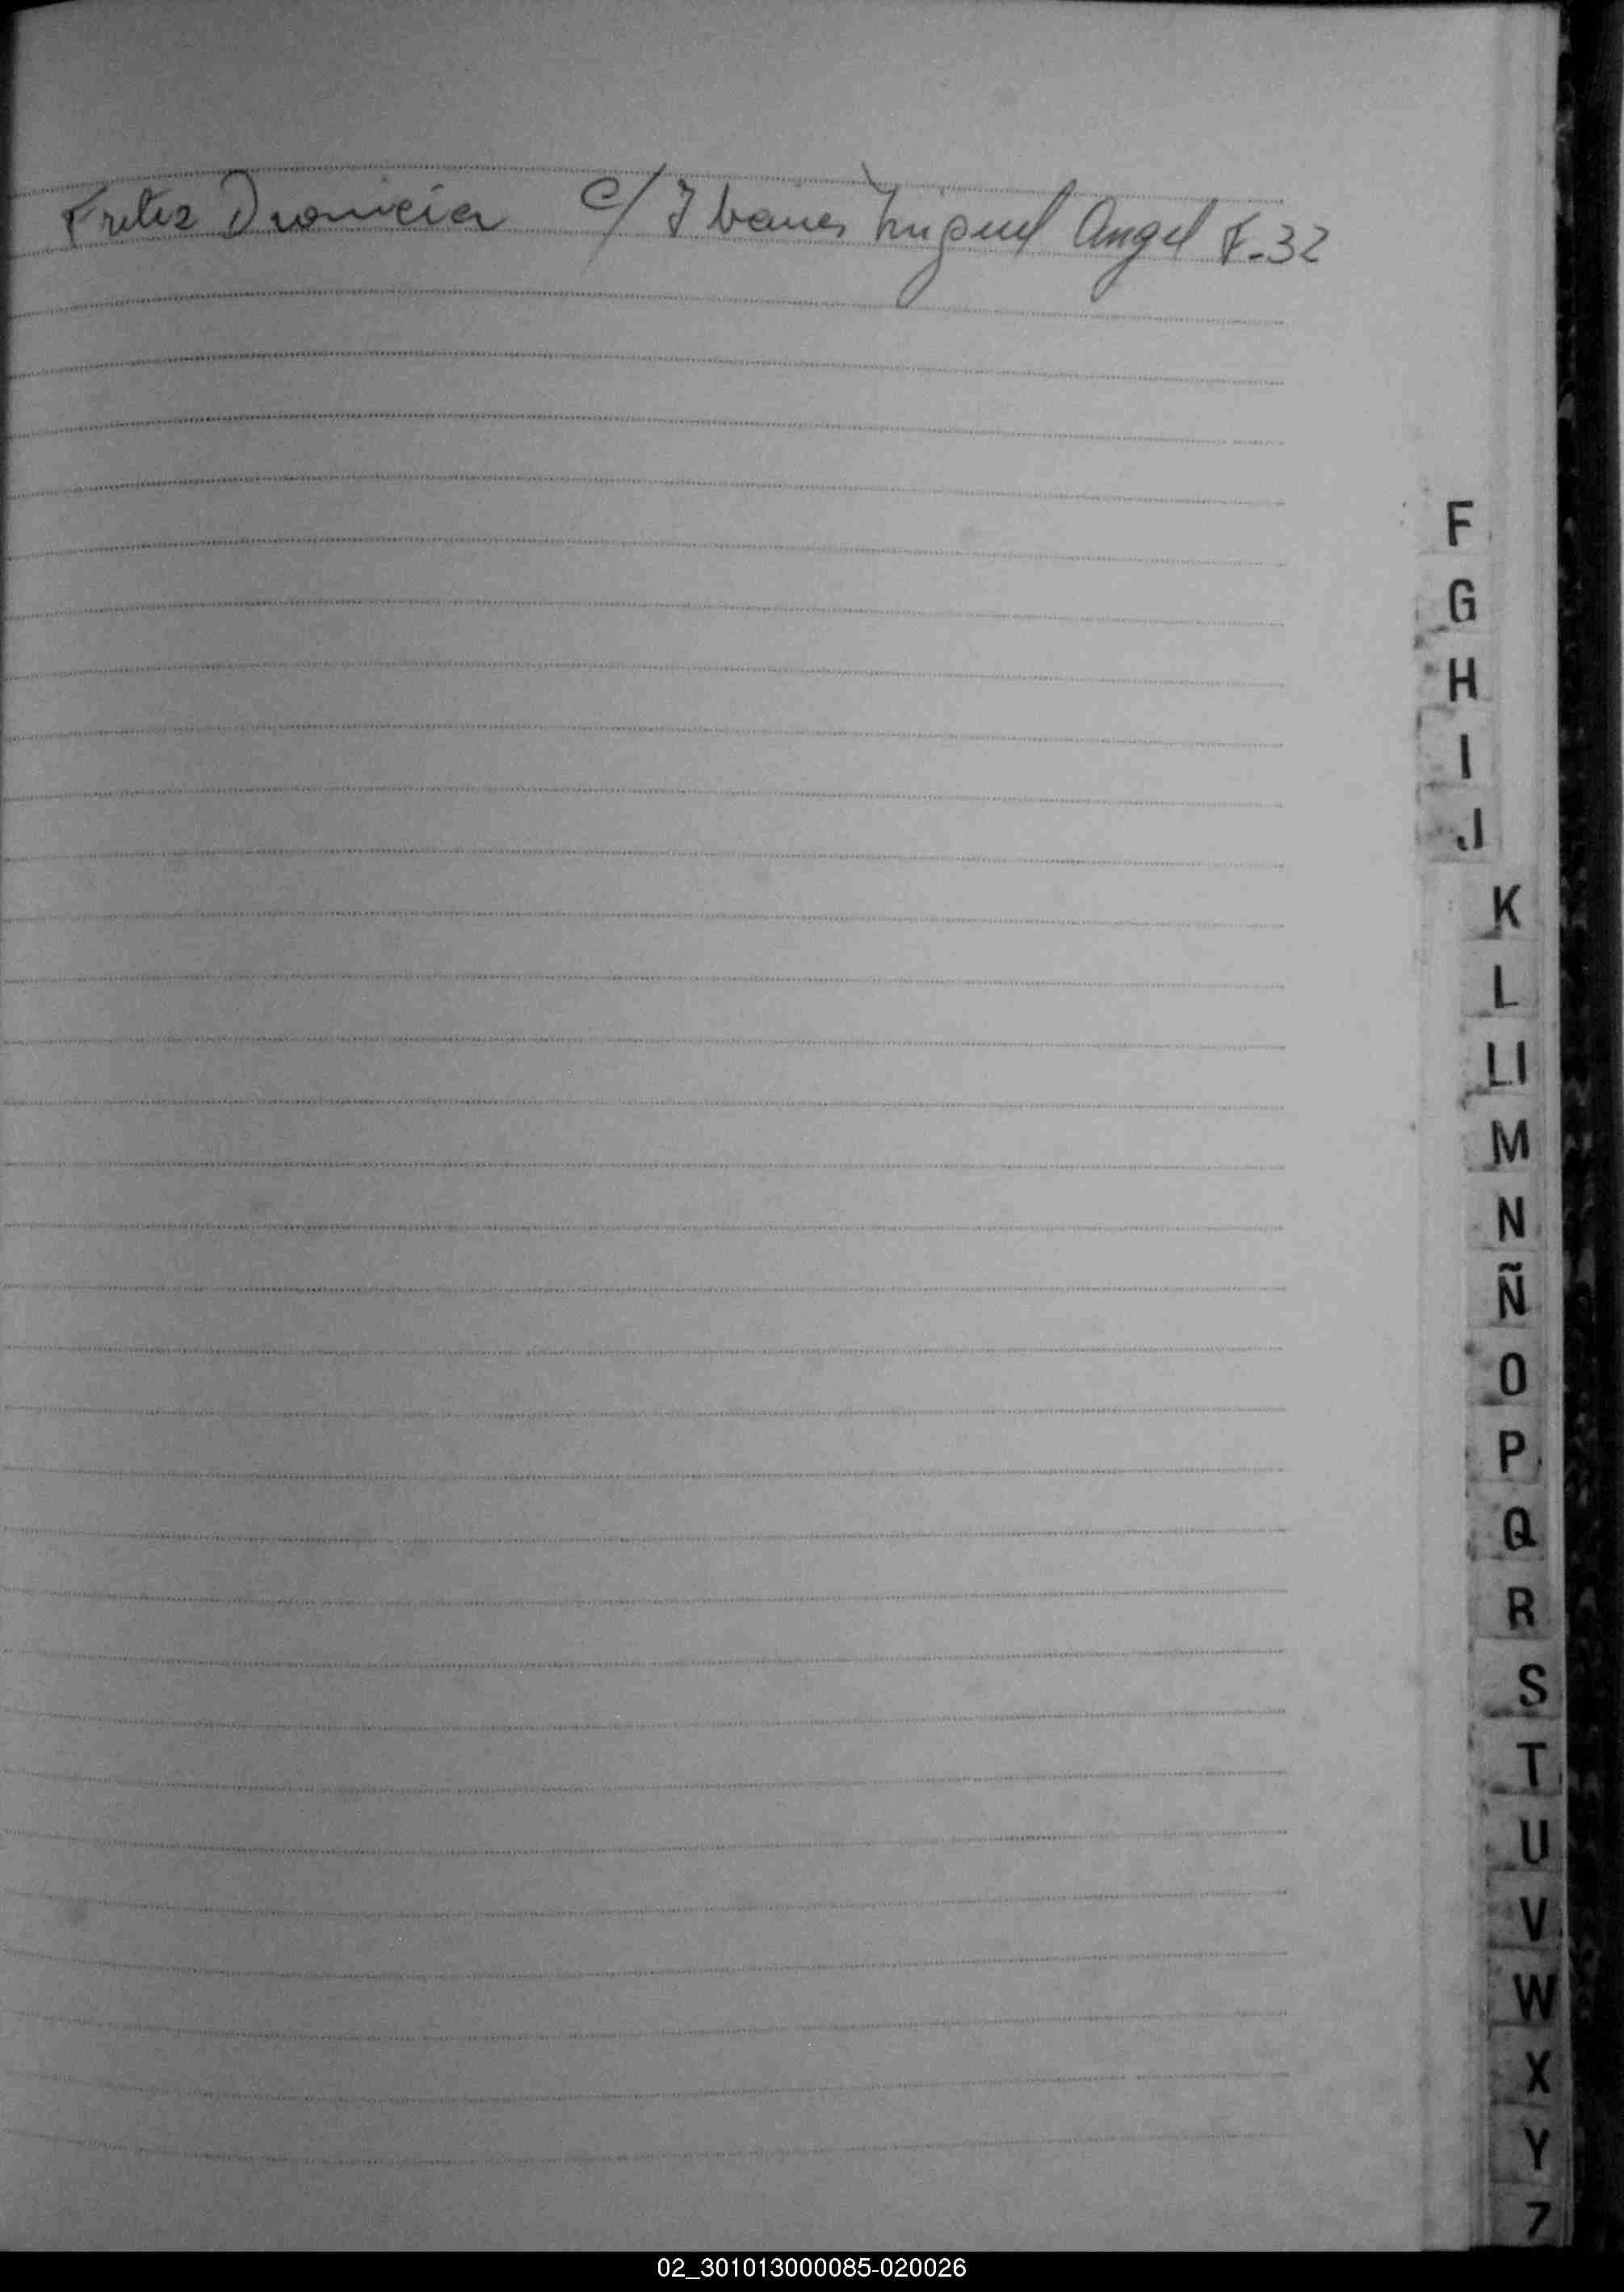 Fretes Dionicia c/ Ibañes Miguel Angel F-32
F
G
H
I
J
K
L
Ll
M
N
Ñ
O
P
Q
R
S
T
U
V
W
X
Y
Z
02_301013000085-020026